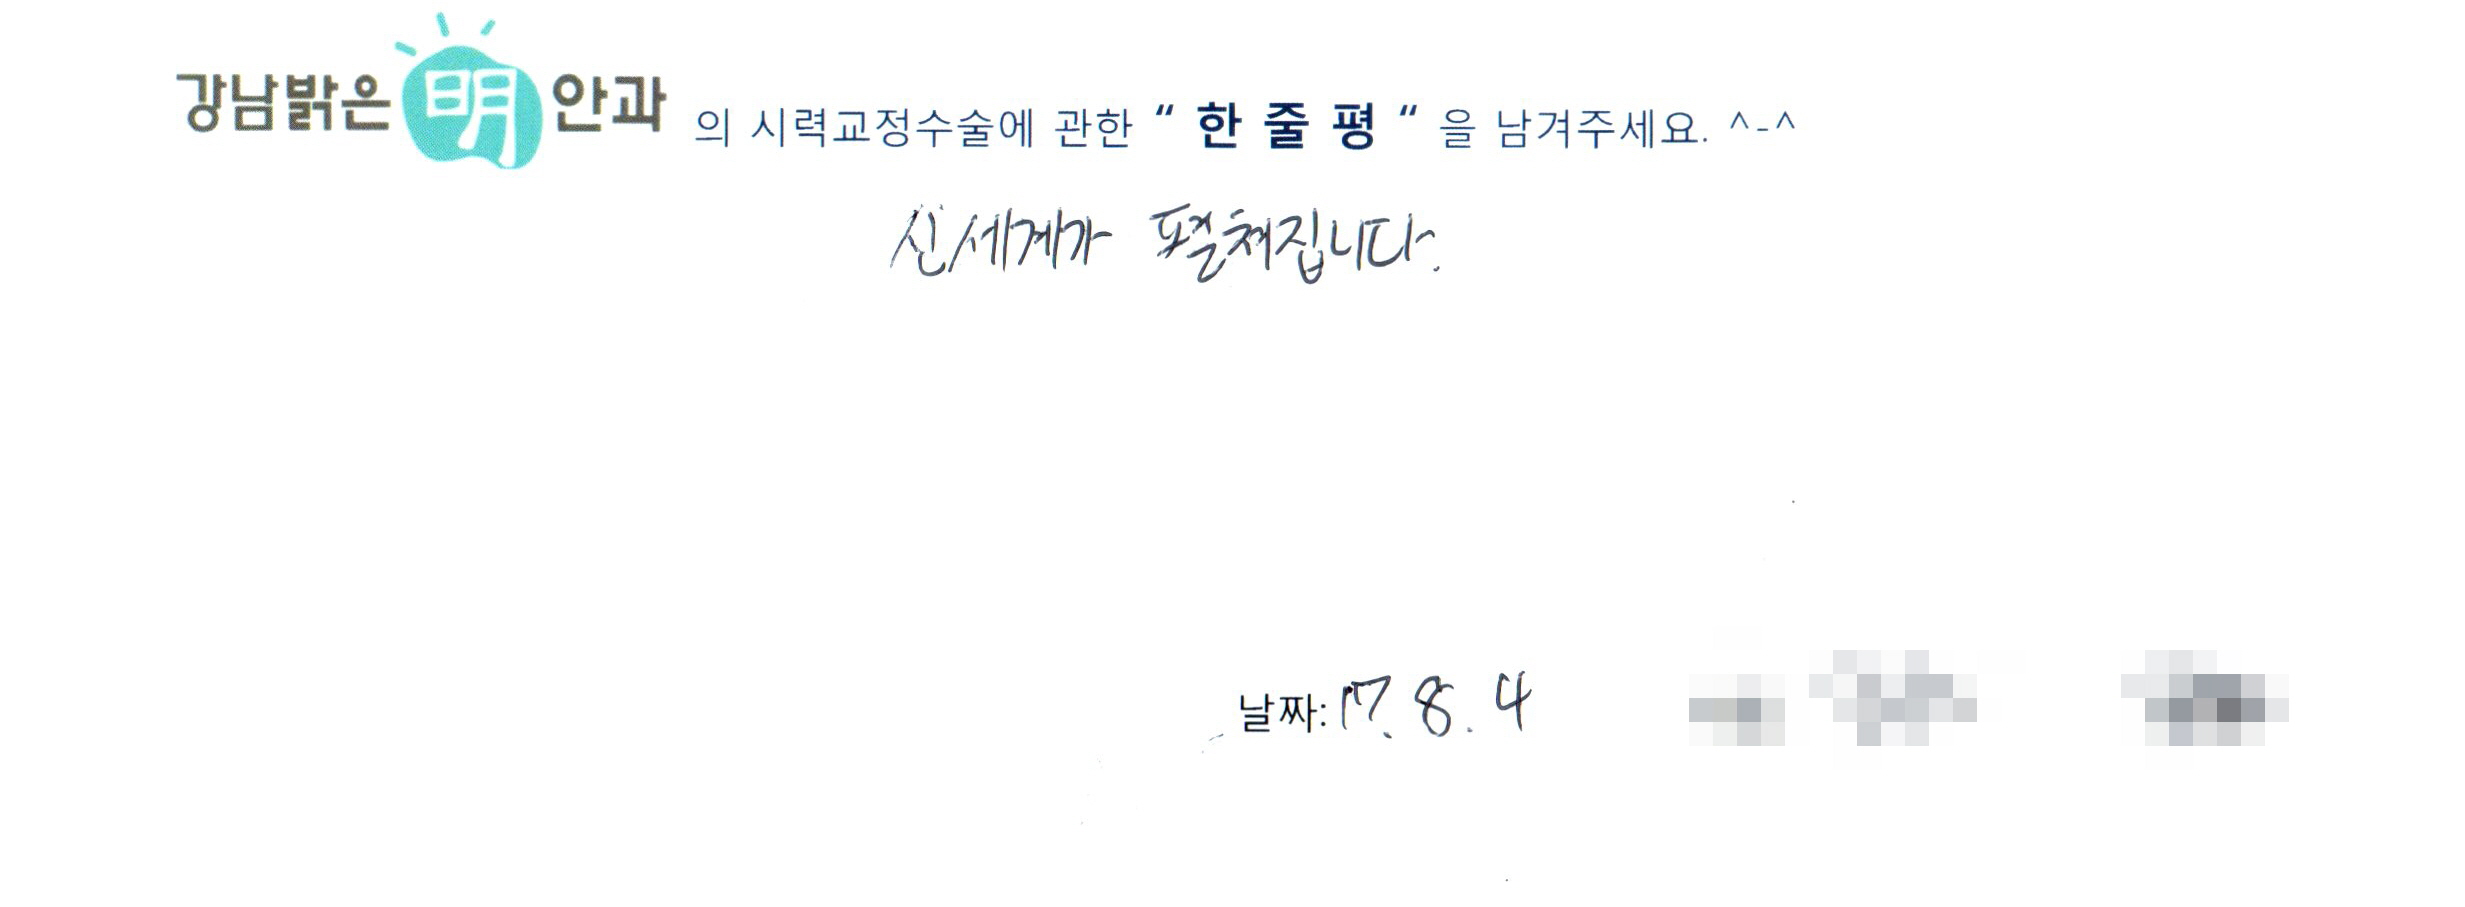 강남밝은明안과 의 시력교정수술에 관한 “ 한 줄 평 “ 을 남겨주세요. ^-^
신세계가 펼쳐집니다.
날짜: 17. 8. 4